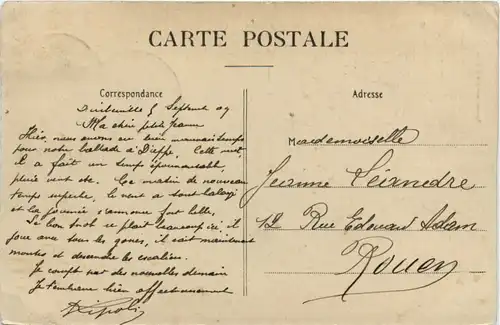 CARTE POSTALE
Correspondance
Adresse
5 Septembre 09
Ma chère petite Jeanne
Hier, nous avons eu bien mauvais temps
pour notre ballade à Dieppe. Cette nuit,
il a fait un temps épouvantable,
pluie vent etc. Ce matin de nouveau
temps superbe, le vent a tout balayé
et la journée s'annonce fort belle.
Le bon trot se plait beaucoup ici, il
joue avec tous les gones, il sait maintenant
monter et descendre les escaliers.
Je compte sur des nouvelles demain
Je t'embrasse bien affectueusement
Mademoiselle
Jeanne
12 Rue Edouard Adam
Rouen